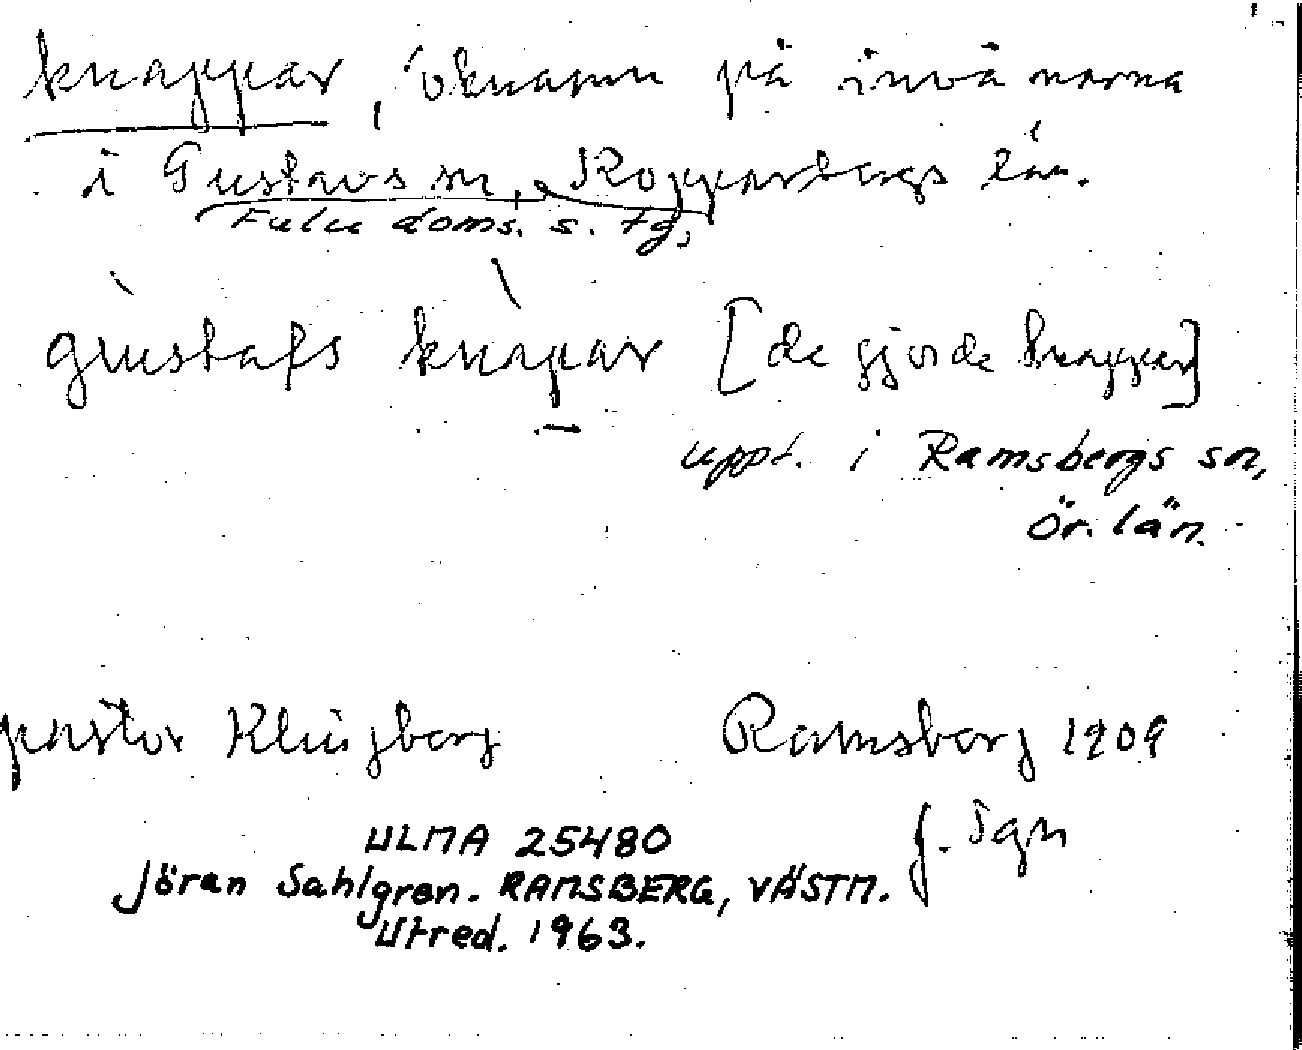 knappar, öknamn på invånarna
i Gustavs sn, Kopparbergs län.
Falu doms. s. tg,
gustafs knapar [de gjorde knappar]
uppt. i Ramsbergs sn,
Ör. län.
pastor Klingberg Ramsberg 1909
J. Sgn
ULMA 25480
Jöran Sahlgren. RAMSBERG, VÄSTM.
Utred. 1963.